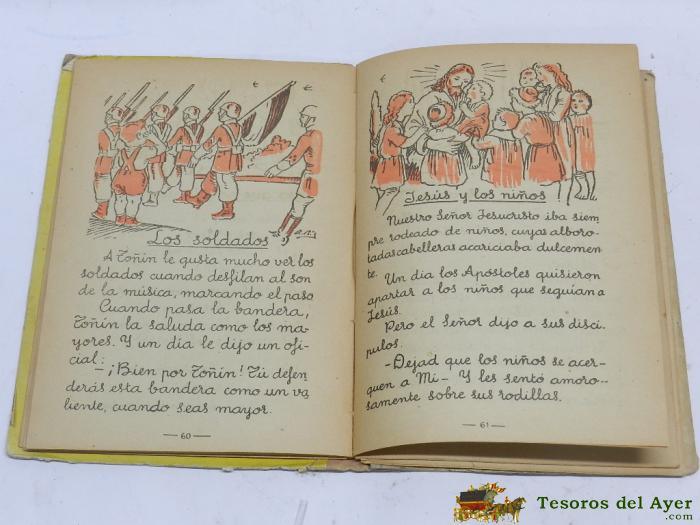 Los soldados
A Toñín le gusta mucho ver los
soldados cuando desfilan al son
de la música, marcando el paso
Cuando pasa la bandera,
Toñín la saluda como los ma-
yores. Y un día le dijo un ofi-
cial:
- ¡Bien por Toñín! Tú defen
derás esta bandera como un va
liente, cuando seas mayor.
— 60 —
Jesús y los niños
Nuestro Señor Jesucristo iba siem
pre rodeado de niños, cuyas alboro-
tadas cabelleras acariciaba dulcemen
te.
Un día los Apostoles quisieron
apartar a los niños que seguían a
Jesús.
Pero el Señor dijo a sus discí-
pulos.
-Dejad que los niños se acer-
quen a Mí- Y les sentó amoro-
samente sobre sus rodillas.
— 61 —
Tesoros del Ayer
.com